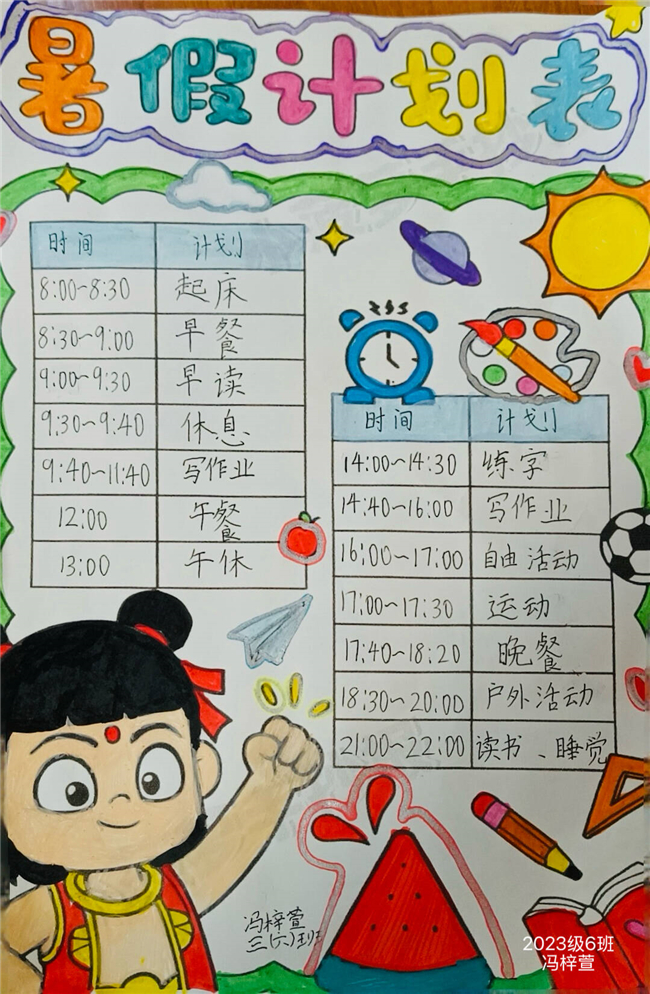 暑假计划表
时间 计划
8:00~8:30 起床
8:30~9:00 早餐
9:00~9:30 早读
9:30~9:40 休息
9:40~11:40 写作业
12:00 午餐
13:00 午休
时间 计划
14:00~14:30 练字
14:40~16:00 写作业
16:00~17:00 自由活动
17:00~17:30 运动
17:40~18:20 晚餐
18:30~20:00 户外活动
21:00~22:00 读书、睡觉
冯梓萱
三(六)班
2023级6班
冯梓萱